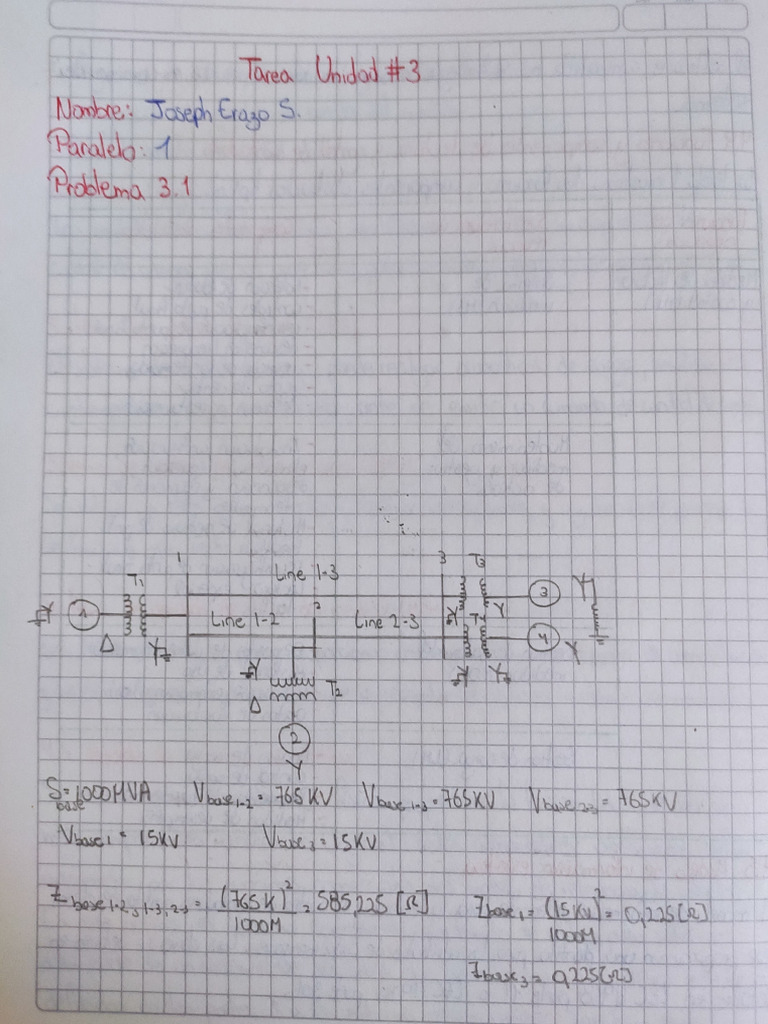 Tarea Unidad #3
Nombre: Joseph Erazo S.
Paralelo: 1
Problema 3.1
1 Line 1-3 3 T3
T1 3
1 Line 1-2 2 Line 2-3 T4 Y Y
Δ 4 Y
Δ T2
2
Y
Sbase = 1000MVA Vbase1-2 = 765KV Vbase1-3 = 765KV Vbase2-3 = 765KV
Vbase1 = 15KV Vbase3 = 15KV
Zbase1-2,1-3,2-3 = (765K)²/1000M = 585,225 [Ω] Zbase1 = (15KV)²/1000M = 0,225[Ω]
Zbase3 = 0,225[Ω]